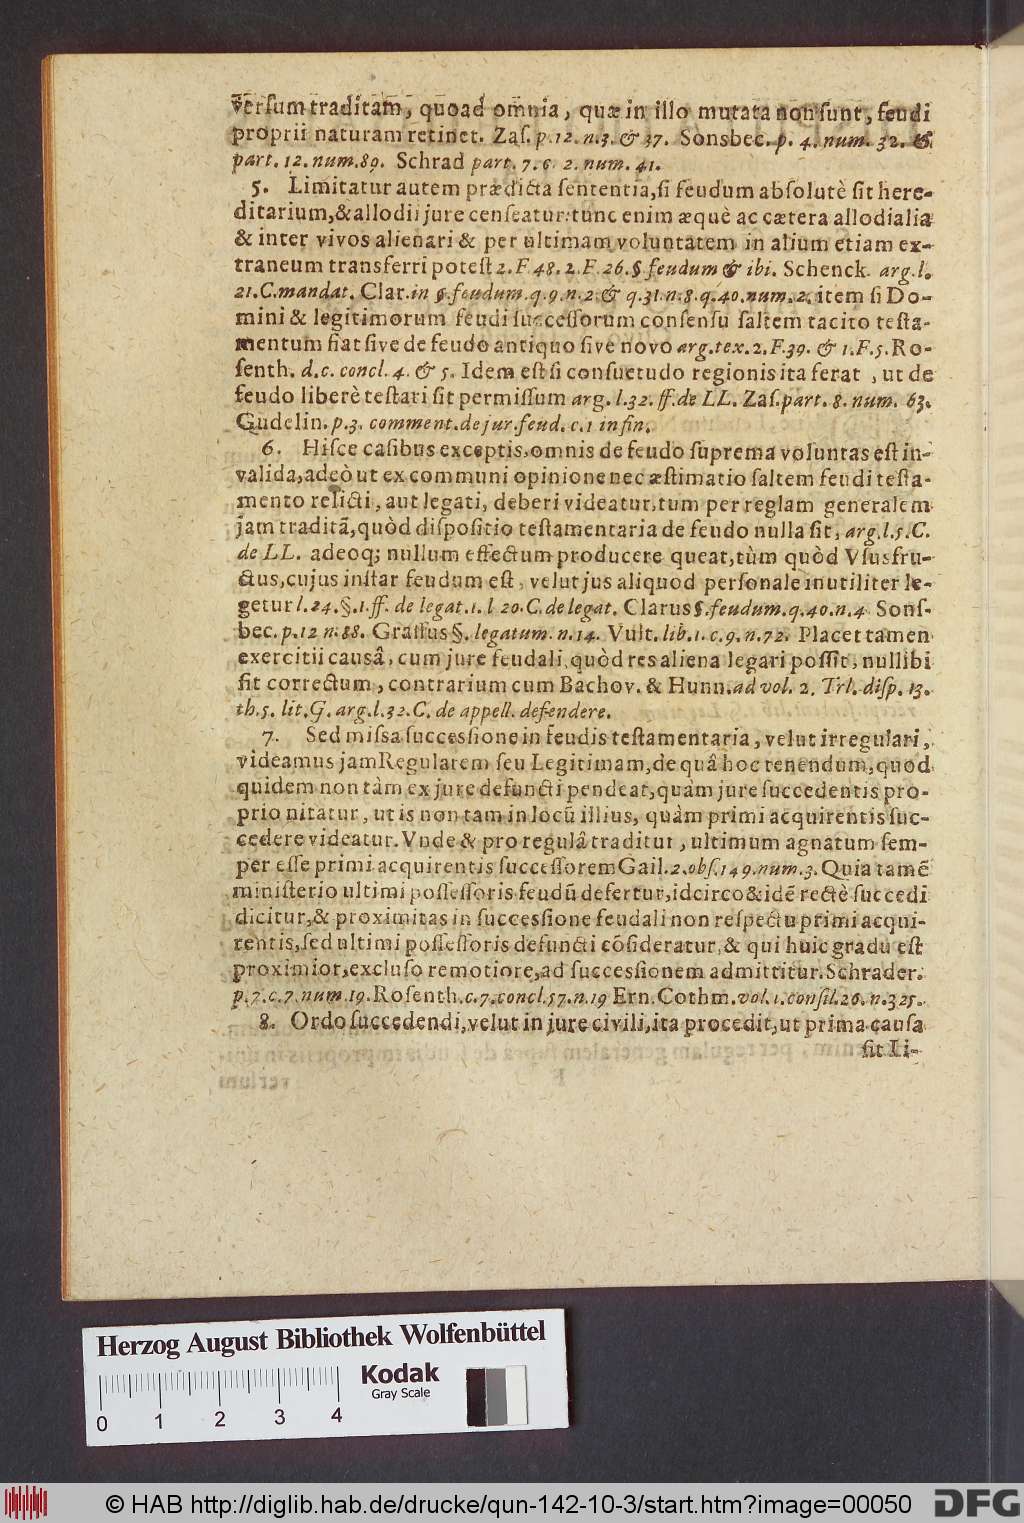 verſum traditam, quoad omnia, quæ in illo mutata non ſunt, feudi
proprii naturam retinet. Zaſ. p. 12. n. 3. & 37. Sonsbec. p. 4. num. 32. &
part. 12. num. 89. Schrad part. 7. c. 2. num. 41.
5. Limitatur autem prædicta ſententia, ſi feudum abſolutè ſit here-
ditarium, & allodii jure cenſeatur: tunc enim æquè ac cætera allodialia
& inter vivos alienari & per ultimam voluntatem in alium etiam ex-
traneum transferri poteſt 2. F. 48. 2. F. 26. §. feudum & ibi. Schenck. arg. l.
21. C. mandat. Clar. in §. feudum. q. 9. n. 2. & q. 31. n. 8. q. 40. num. 2. item ſi Do-
mini & legitimorum feudi ſucceſſorum conſenſu ſaltem tacito teſta-
mentum fiat ſive de feudo antiquo ſive novo arg. tex. 2. F. 39. & 1. F. 5. Ro-
ſenth. d. c. concl. 4. & 5. Idem eſt ſi conſuetudo regionis ita ferat , ut de
feudo liberè teſtari ſit permiſſum arg. l. 32. ff. de LL. Zaſ. part. 8. num. 63.
Gudelin. p. 3. comment. de jur. feud. c. 1 in fin.
6. Hiſce caſibus exceptis, omnis de feudo ſuprema voluntas eſt in-
valida, adeò ut ex communi opinione nec æſtimatio ſaltem feudi teſta-
mento relicti, aut legati, deberi videatur, tum per reglam generalem
jam traditã, quòd diſpoſitio teſtamentaria de feudo nulla ſit, arg. l. 5. C.
de LL. adeoq; nullum effectum producere queat, tùm quòd Vſusfru-
ctus, cujus inſtar feudum eſt, velut jus aliquod perſonale inutiliter le-
getur l. 24. §. 1. ff. de legat. 1. l 20. C. de legat. Clarus §. feudum. q. 40. n. 4 Sonſ-
bec. p. 12 n. 88. Graſſus §. legatum. n. 14. Vult. lib. 1. c. 9. n. 72. Placet tamen
exercitii causâ, cum jure feudali, quòd res aliena legari poſſit, nullibi
ſit correctum, contrarium cum Bachov. & Hunn. ad vol. 2. Trl. diſp. 13.
th. 5. lit. G. arg. l. 32. C. de appell. defendere.
7. Sed miſsa ſucceſſione in feudis teſtamentaria, velut irregulari,
videamus jam Regularem ſeu Legitimam, de quâ hoc tenendum, quod
quidem non tàm ex jure defuncti pendeat, quàm jure ſuccedentis pro-
prio nitatur, ut is non tam in locũ illius, quàm primi acquirentis ſuc-
cedere videatur. Vnde & pro regulâ traditur, ultimum agnatum ſem-
per eſſe primi acquirentis ſucceſſorem Gail. 2. obſ. 149. num. 3. Quia tamẽ
miniſterio ultimi poſſeſſoris feudũ defertur, idcirco & idẽ rectè ſuccedi
dicitur, & proximitas in ſucceſſione feudali non reſpectu primi acqui-
rentis, ſed ultimi poſſeſſoris defuncti cõſideratur, & qui huic gradu eſt
proximior, excluſo remotiore, ad ſucceſſionem admittitur. Schrader.
p. 7. c. 7. num. 19. Roſenth. c. 7. concl. 57. n. 19 Ern. Cothm. vol. 1. conſil. 26. n. 325.
8. Ordo ſuccedendi, velut in jure civili, ita procedit, ut prima cauſa
ſit Li-
Herzog August Bibliothek Wolfenbüttel
Kodak
Gray Scale
0 1 2 3 4
© HAB http://diglib.hab.de/drucke/qun-142-10-3/start.htm?image=00050
DFG